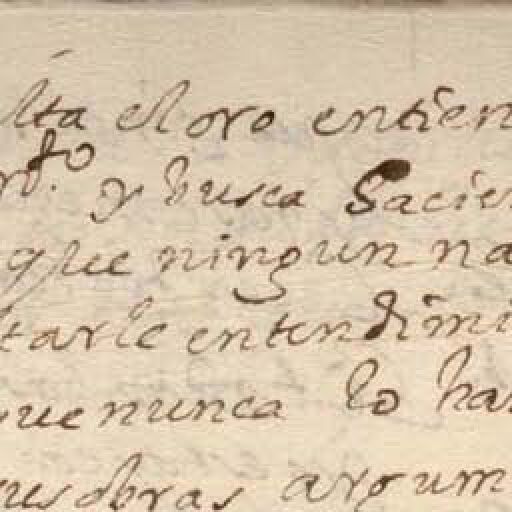 lta el oro entien
y busca Sacie
que ningun na
tarle entendimi
que nunca lo ha
sus obras argum